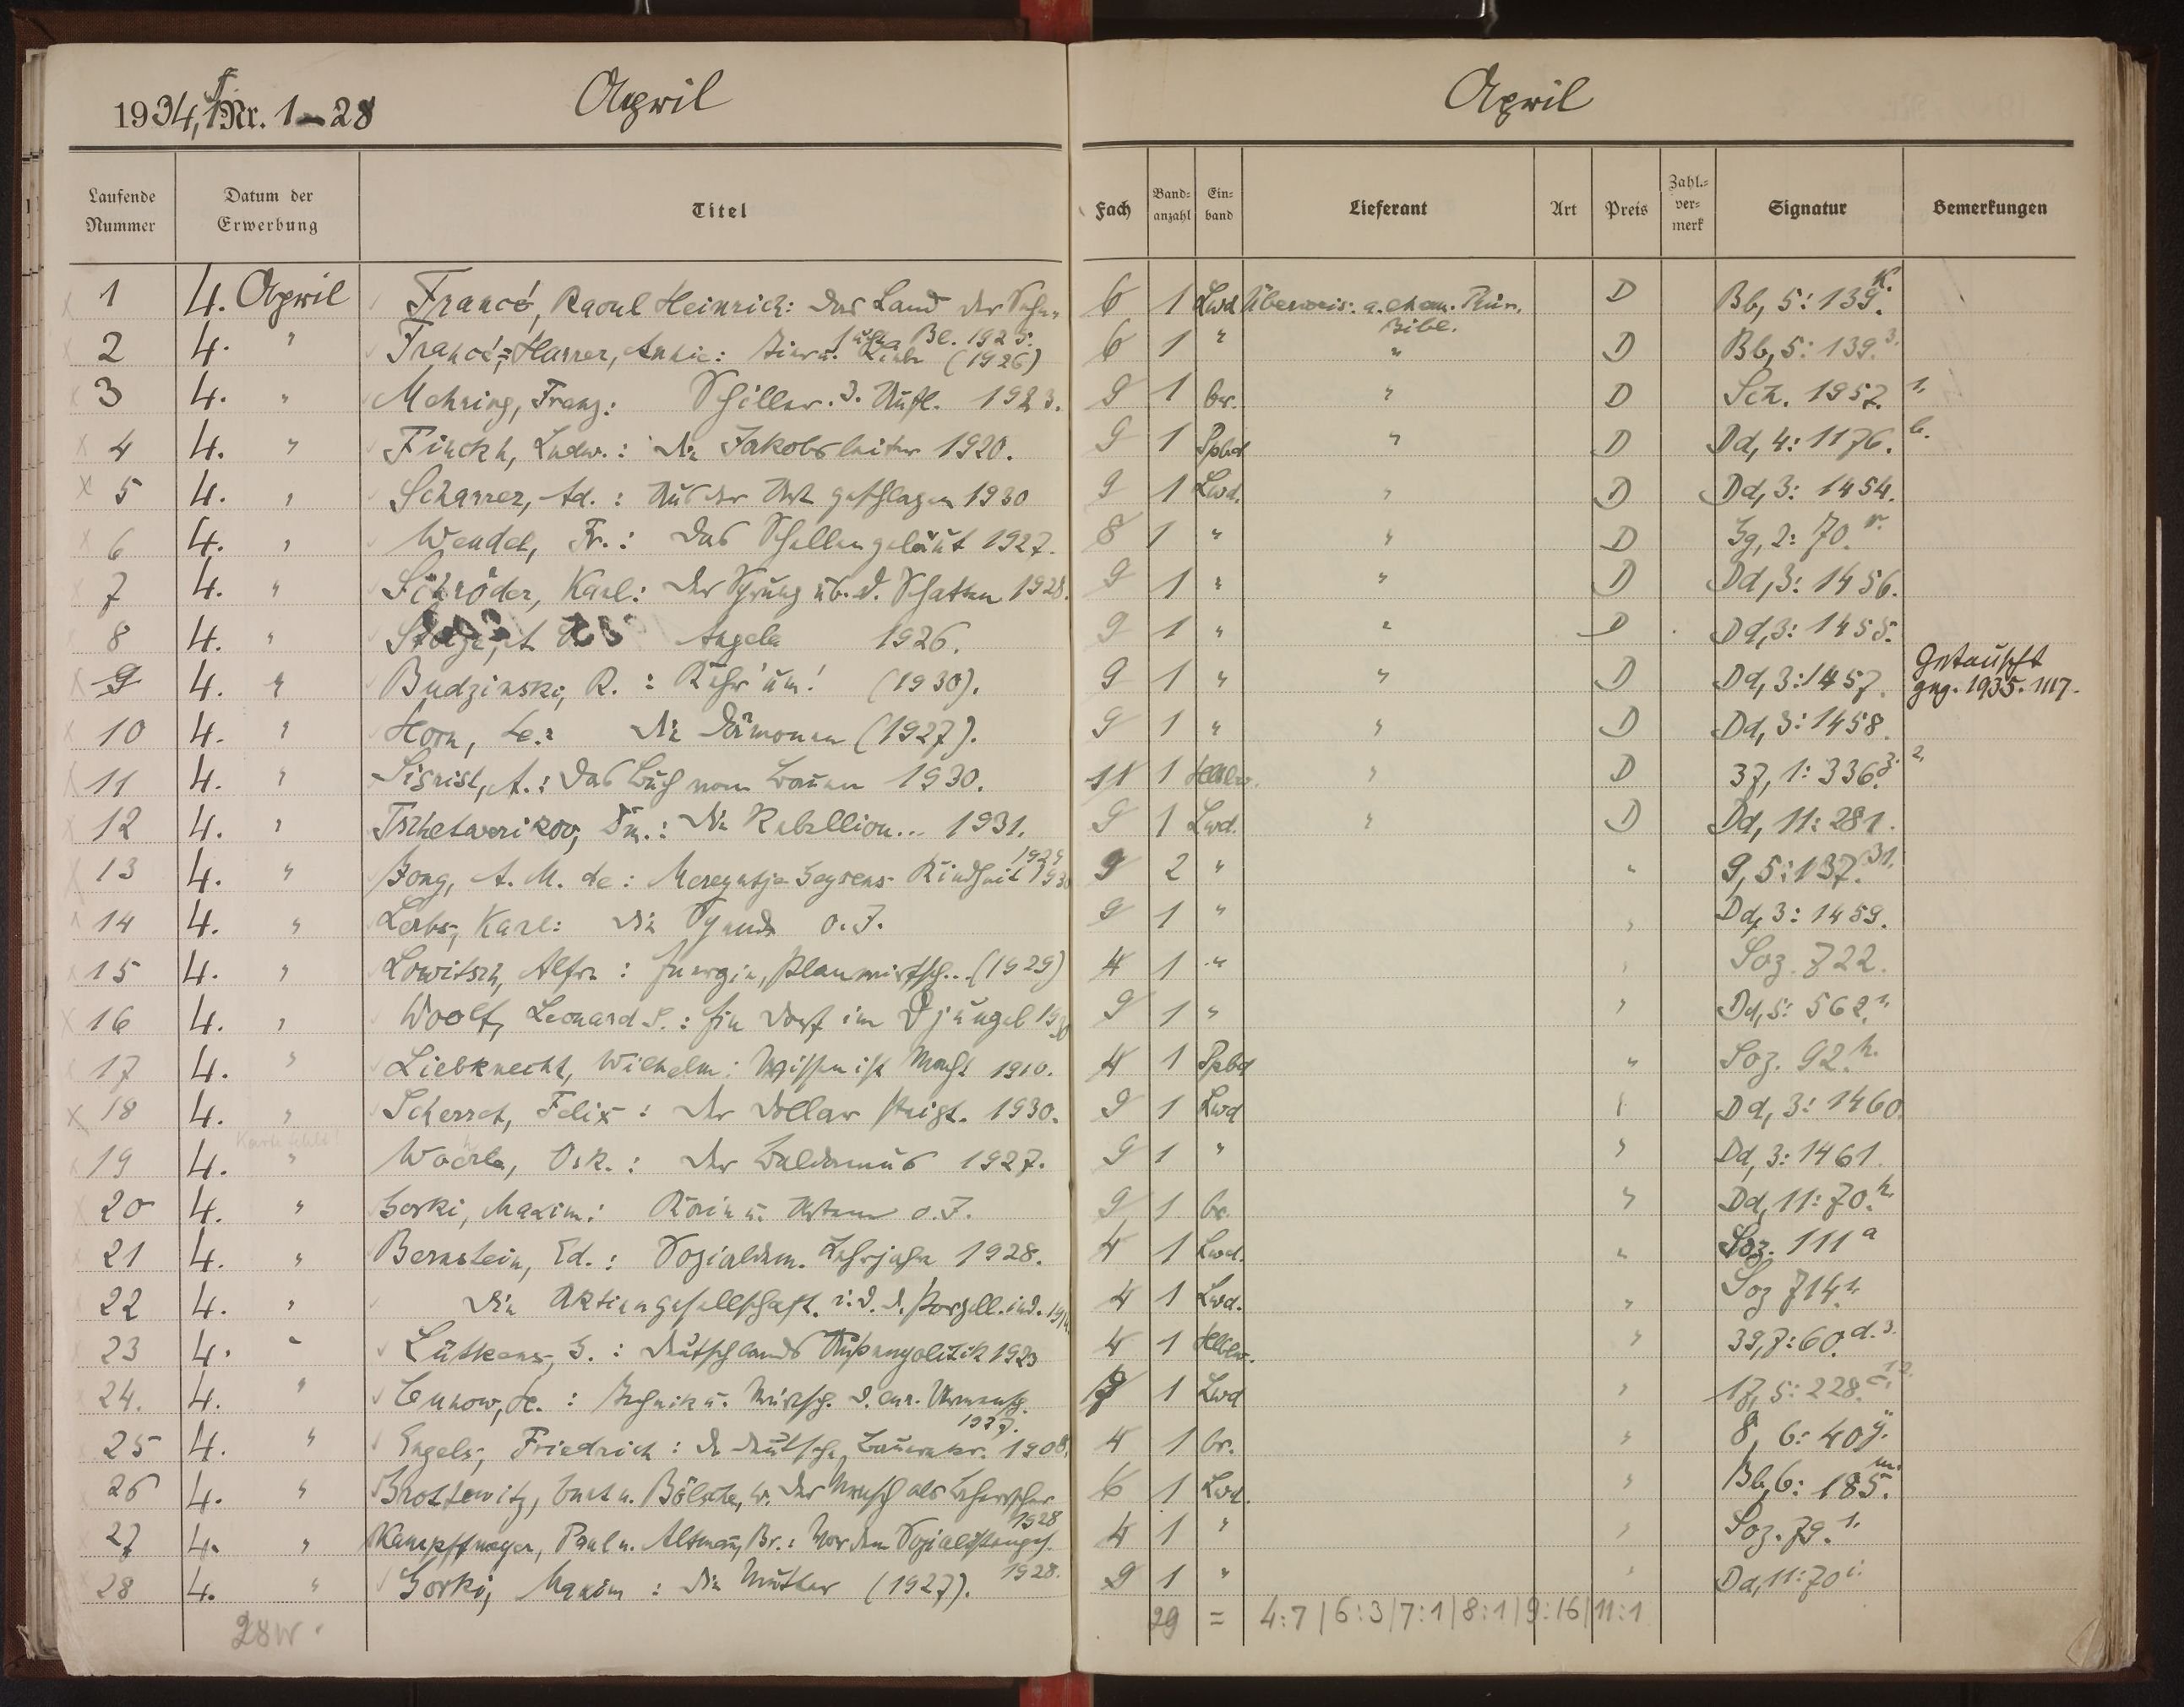 1934, Nr. 1–28 April
April
Laufende Nummer Datum der Erwerbung Titel Fach Band-anzahl Ein-band Lieferant Art Preis Zahl.-ver-merk Signatur Bemerkungen
1 4. April Francé, Raoul Heinrich: Das Land der Sehn- 6 1 Lwd Überweis. a. ehem. Thür. D Bb, 5: 139 k.
sucht Bl. 1925. Bibl.
2 4. " Francé-Harrer, Annie: Tier u. Liebe (1926) 6 1 " " D Bb, 5: 139.
3 4. " Mehring, Franz: Schiller. 3. Aufl. 1923. 9 1 br. " D Sch. 1957.
4 4. " Finckh, Ludw.: Die Jakobsleiter 1920. 9 1 Ppbd " D Dd, 4: 1176. b.
5 4. " Scharrer, Ad.: Aus der Art geschlagen 1930 9 1 Lwd. " D Dd, 3: 1454.
6 4. " Wendel, Fr.: Das Schellengeläut 1927. 8 1 " " D 3g, 2: 70. r.
7 4. " Schröder, Karl: Der Sprung üb. d. Schatten 1928. 9 1 " " D Dd, 3: 1456.
8 4. " Angela 1926. 9 1 " " D Dd, 3: 1455.
9 4. " Budzinski, R.: Kehr' um! (1930). 9 1 " " D Dd, 3: 1457. Getauscht
geg. 1935. 1117.
10 4. " Horn, He.: Die Dämonen (1927). 9 1 " " D Dd, 3: 1458.
11 4. " Sigrist, A.: Das Buch vom Bauen 1930. 11 1 Hlblw. " D 37, 1: 336
12 4. " Tschetwerikov, Dm.: Die Rebellion... 1931. 9 1 Lwd. " D Dd, 11: 281.
13 4. " Jong, A. M. de: Mereyntje Geysens Kindheit 1929 1930 9 2 " " 9, 5: 137. 31.
14 4. " Lerbs, Karl: Die Spende o. J. 9 1 " " Dd, 3: 1459.
15 4. " Lowitsch, Alfr.: Energie, Planwirtsch... (1929) 4 1 " " Soz. 722.
16 4. " Woolf, Leonard S.: Ein Dorf im Djungel 1930 9 1 " " Dd, 5: 562.
17 4. " Liebknecht, Wilhelm: Wissen ist Macht 1910. 4 1 Ppbd " Soz. 92. h.
18 4. " Scherret, Felix: Der Dollar steigt. 1930. 9 1 Lwd " Dd, 3: 1460.
Karte fehlt!
19 4. " Woehrle, Osk.: Der Baldamus 1927. 9 1 " " Dd, 3: 1461.
20 4. " Gorki, Maxim: o. J. 9 1 br. " Dd, 11: 70. h.
21 4. " Bernstein, Ed.: Sozialdem. Lehrjahre 1928. 4 1 Lwd. " Soz. 111 a
22 4. " Die Aktiengesellschaft. i. d. d. Porzell. ind. 4 1 Lwd. " Soz 714
23 4. " Lütkens, G.: Deutschlands Außenpolitik 1923 4 1 Hlblw. " 39, 7: 60. d. 3.
24. 4. " Cunow, He.: Technik u. Wirtsch. d. eur. Urmensch. 7 1 Lwd " 17, 5: 228.
1927.
25 4. " Engels, Friedrich: D. deutsche Bauernkr. 1908. 4 1 br. " 8, 6: 40 g.
26 4. " Grottewitz, Curt u. Bölsche, W. Der Mensch als Beherrscher 6 1 Lwd. " Bb, 6: 185. m.
1928
27 4. " Kampffmeyer, Paul u. Altmann, Br.: Vor dem Sozialistenges. 4 1 " " Soz. 79.
1928.
28 4. " Gorki, Maxim: Die Mutter (1927). 9 1 " " Dd, 11: 70 i.
28 W. 29 = 4:7 | 6:3 | 7:1 | 8:1 | 9:16 | 11:1